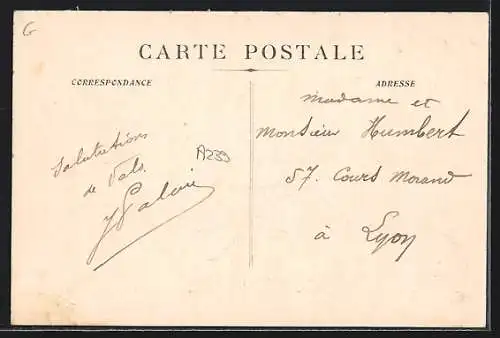 G
CARTE POSTALE
CORRESPONDANCE
ADRESSE
Salutations
de Vals
A239
Madame et
Monsieur Humbert
57. Cours Morand
à Lyon